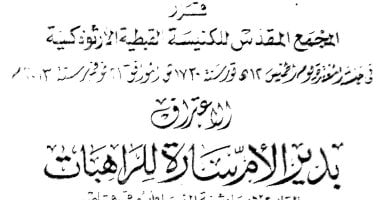 قرر
المجمع المقدس للكنيسة القبطية الأرثوذكسية
فى جلسته المنعقدة يوم الخميس ١٢ هاتور سنة ١٧٣٠ الموافق ٢١ نوفمبر سنة ٢٠١٣م
الاعتراف
بدير الأم سارة للراهبات